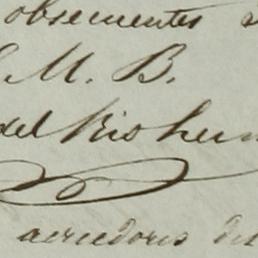 obsecuentes
M. B.
del Rio
acreedores del